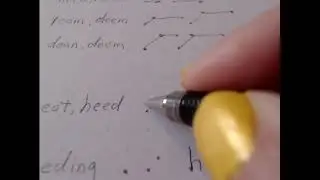 room, doom
dean, deem
eat, heed
eding h